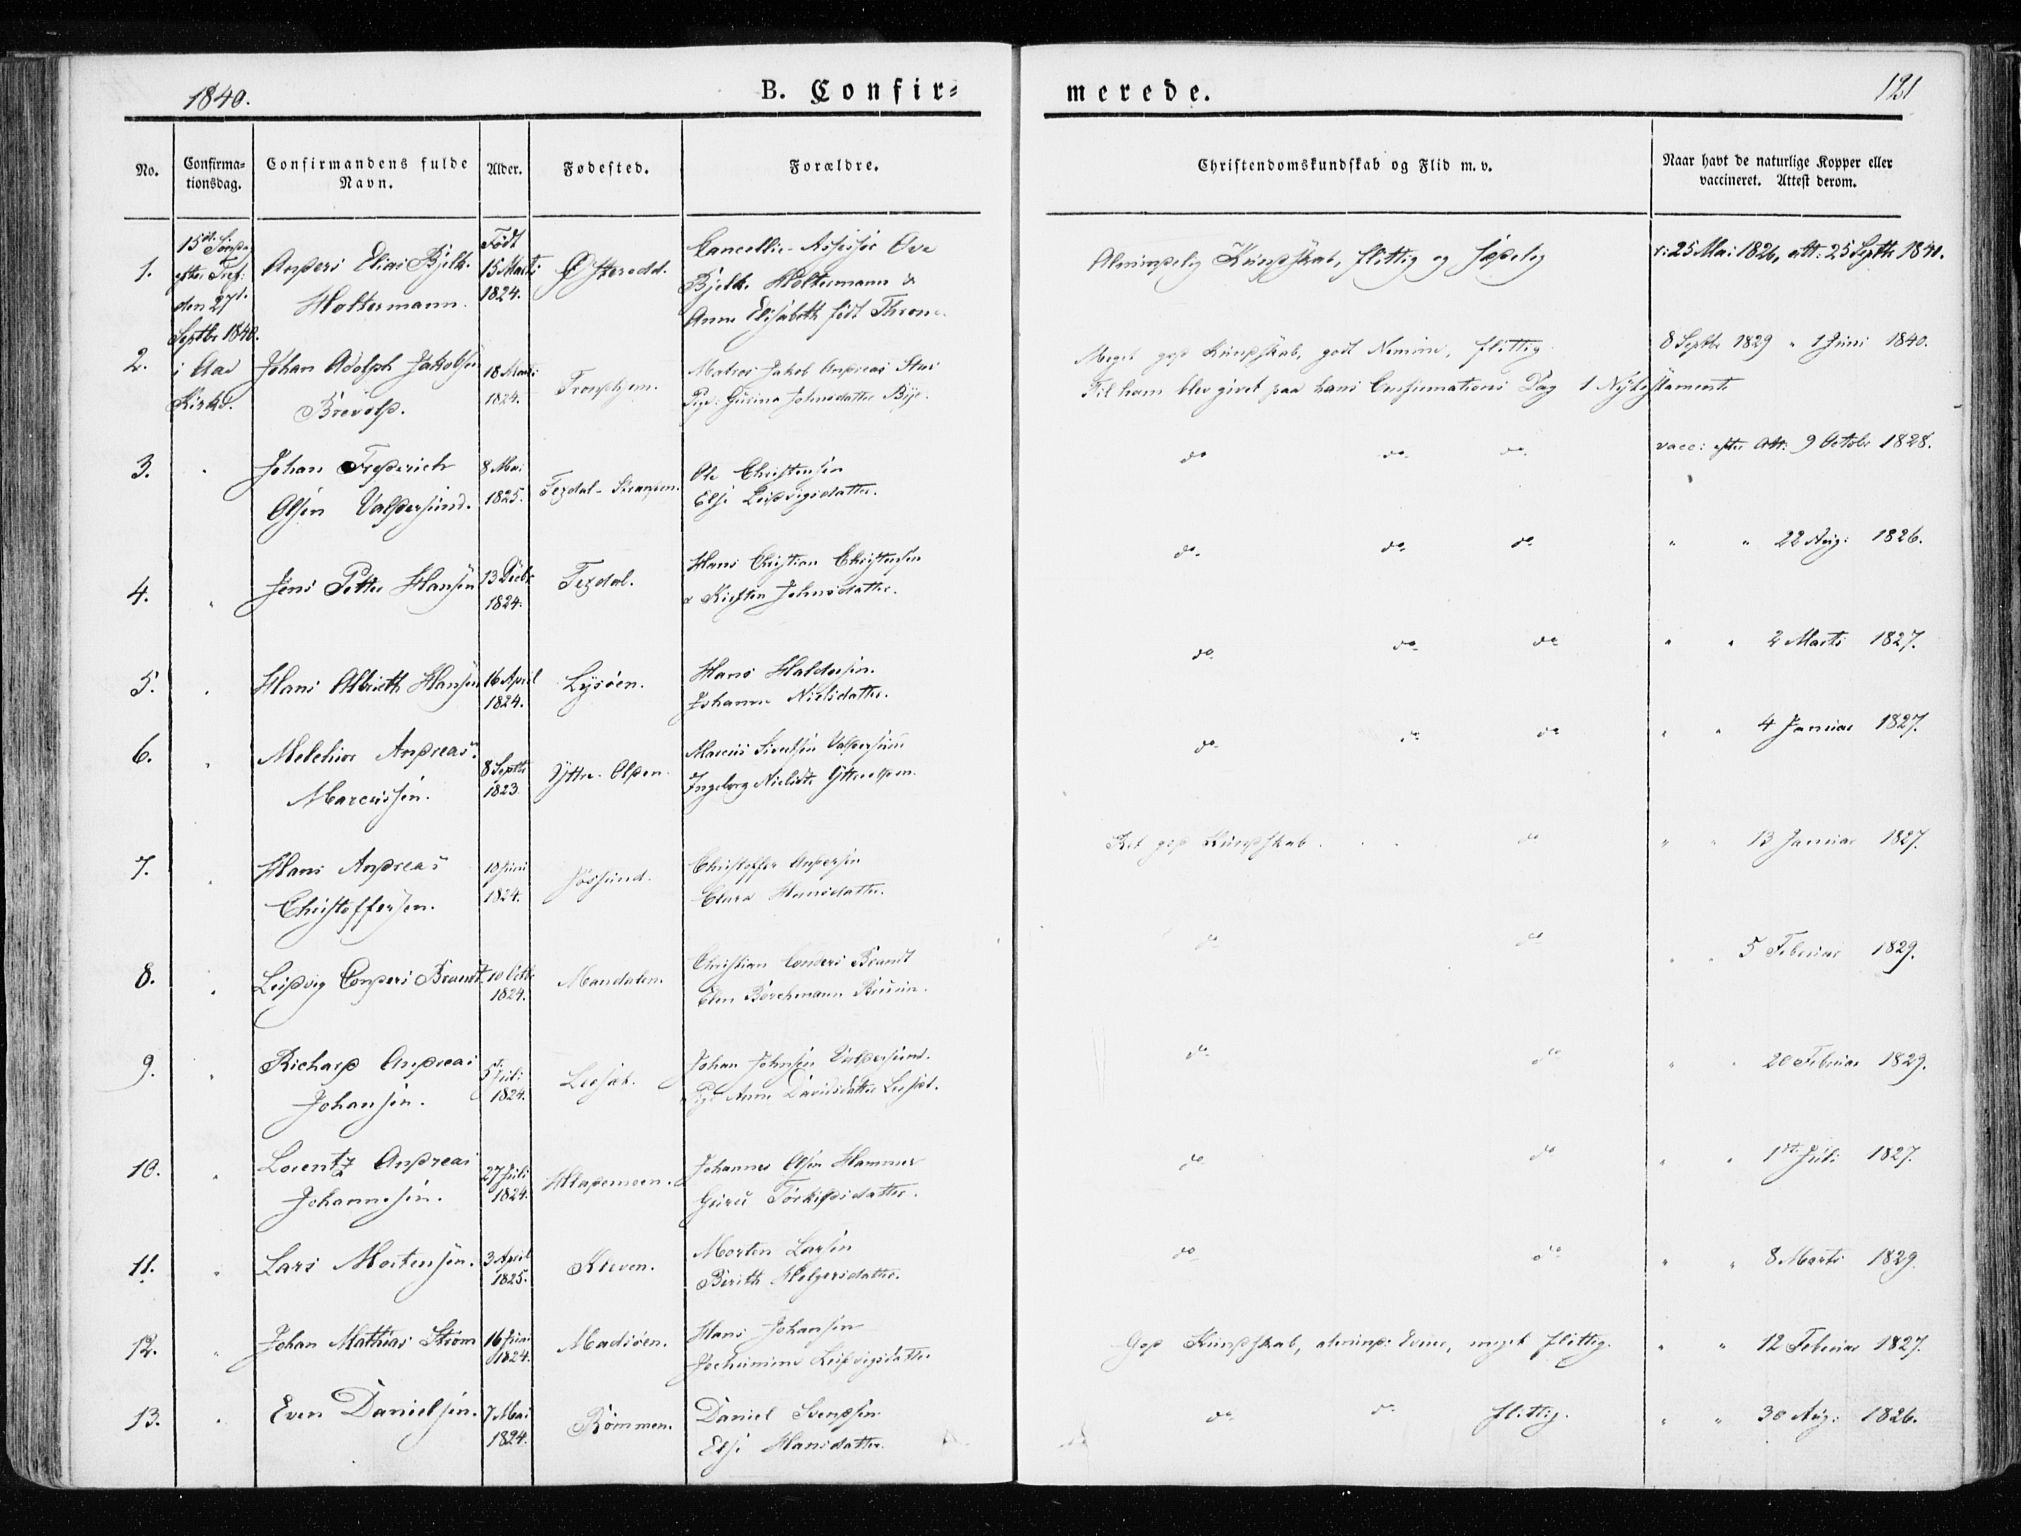 1840.
B. Confir=
merede.
121
No.
Confirma-
tionsdag.
Confirmandens fulde
Navn.
Alder.
Fødested.
Forældre.
Christendomskundskab og Flid m. v.
Naar havt de naturlige Kopper eller
vaccineret. Attest derom.
15de Søndag
efter Tref:
den 27de
Septbr 1840.
i Aae
Kirke.
1.
Anders Elias Bjelk.
Holtermann.
Født
15 Marts
1824.
Østeraad.
Cancellie-Assessor Ove
Bjelk. Holtermann &
Anne Elisabeth født Thron
Almindelig Kundskab, flittig og sædelig
25 Mai 1826, att: 25 Septbr 1840.
2.
Johan Adolph Jakobsen
Brevold.
18 Marts
1824.
Trondhjem.
Matros Jakob Andreas
Pige: Gurina Johnsdatter
Meget god Kundskab, godt Nemme, flittig
Til ham blev givet paa hans Confirmations Dag 1 Nytestament
8 Septbr 1829 " 1 Juni 1840.
3.
Johan Frederich
Olsen Valdersund.
8 Mai
1825.
Tegdal-Stranden.
Ole Christensen
Else Ludvigsdatter.
do do do
vacc: efter Att: 9 Octobr 1828.
4.
"
Jens Petter Hansen
13 Decbr
1824.
Tegdal.
Hans Christian Christensen
& Kirsten Johnsdatter.
do do do
" " 22 Aug: 1826.
5.
"
Hans Albrieth Hansen
16 April
1824.
Lysøen.
Hans Haldorsen.
Johanna Nielsdatter.
do do do
" " 2 Marts 1827.
6.
"
Melchior Andreas
Marcussen.
8 Septbr
1823.
Yttre-Olden.
Marcus Sivertsen Valdersund
Ingeborg Nielsdtr Ytterolden.
do do do
" " 4 Januar 1827.
7.
"
Hans Andreas
Christoffersen.
10 Juni
1824.
Jøssund.
Christoffer Andersen
Clara Hansdatter.
Ret god Kundskab . . . do
" " 13 Januar 1827.
8.
"
Ludvig Conders Brandt
10 Octbr
1824.
Mandalen.
Christian Conders Brandt
Elen Borchmann Bruun.
do do
" " 5 Februar 1829.
9.
"
Richard Andreas
Johansen.
5 Juli
1824.
Leesæt.
Johan Johnsen Valdersund.
Pige Anne Davidsdatter Leesæt.
do do
" " 20 Februar 1829.
10.
"
Lorentz Andreas
Johannesen.
27 Juli
1824.
Hladmoen.
Johannes Olsen Hammer
Guru Torkildsdatter.
do do
" " 1ste Juli 1827.
11.
"
Lars Mortensen.
3 April
1825.
Kleven.
Morten Larsen
Berith Holgersdatter.
do do
" " 8 Marts 1829.
12.
"
Johan Mathias Strøm
16 Juni
1824.
Madsøen.
Hans Johansen
Jochumine Ludvigsdatter
God Kundskab, almind: Evner, meget flittig.
" " 12 Februar 1827.
13.
"
Even Danielsen.
7 Mai
1824.
Rømmen.
Daniel Svendsen
Else Hansdatter.
do do flittig.
" " 30 Aug: 1826.